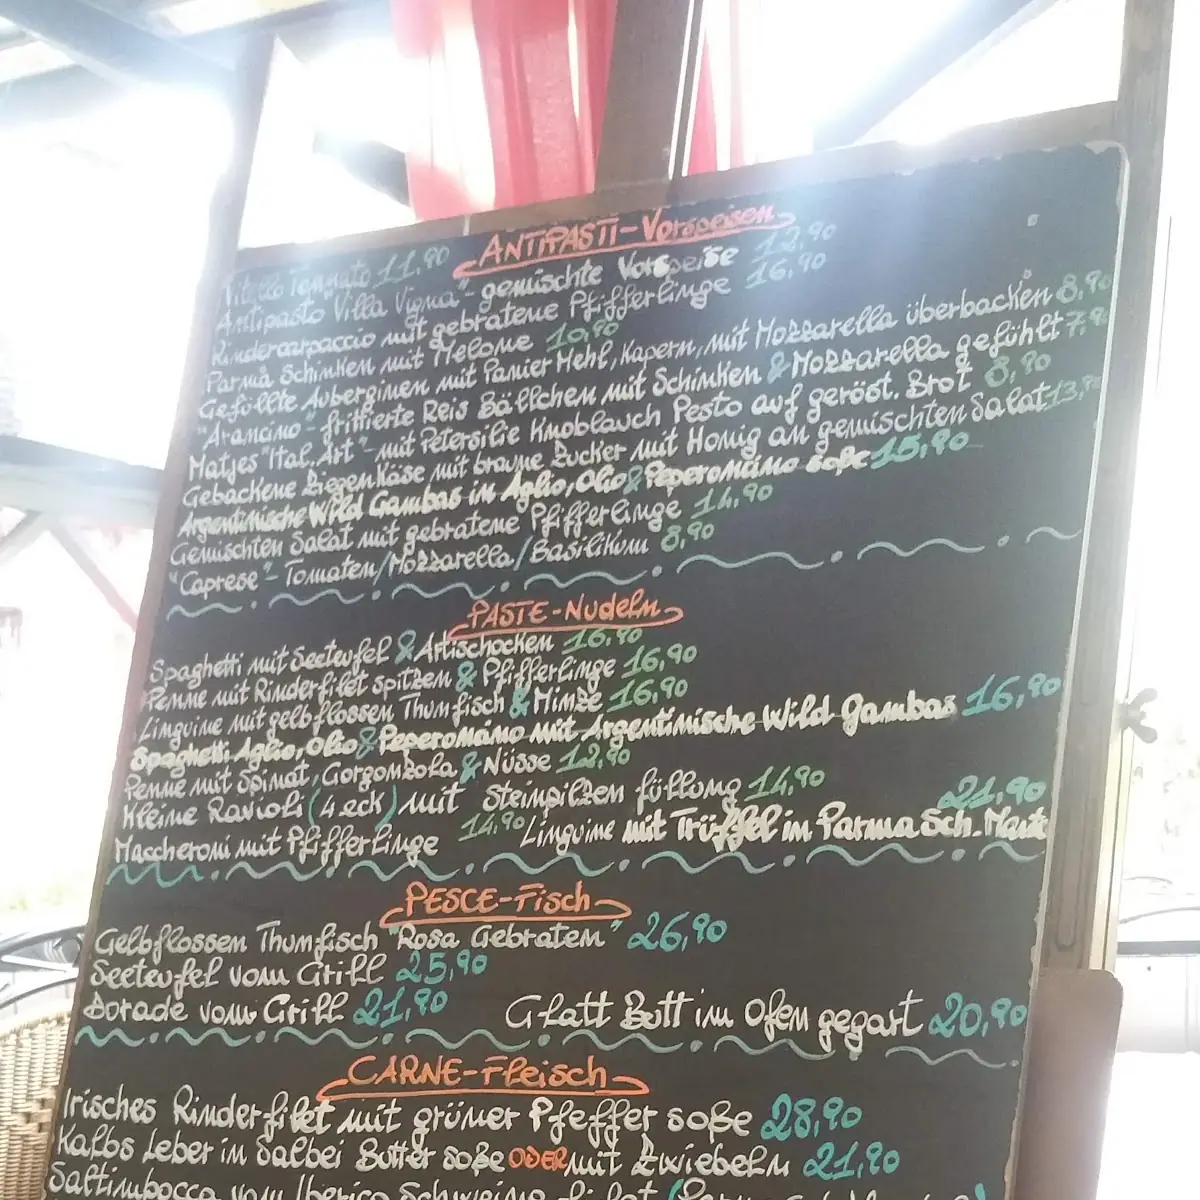 ANTIPASTI-Vorspeisen
Vitello Tonnato 11,90
Antipasto "Villa Vigna" - gemischte Vorspeise 12,90
Rindercarpaccio mit gebratene Pfifferlinge 16,90
Parma Schinken mit Melone 10,90
Gefüllte Auberginen mit Panier Mehl, Kapern, mit Mozzarella überbacken 8,90
"Arancino" - frittierte Reis Bällchen mit Schinken & Mozzarella gefühlt 7,90
Matjes "Ital. Art" - mit Petersilie Knoblauch Pesto auf geröst. Brot 8,90
Gebackene Ziegenkäse mit braune Zucker mit Honig an gemischten Salat 13,90
Argentinische Wild Gambas in Aglio, Olio & Peperoncino soße 15,90
Gemischten Salat mit gebratene Pfifferlinge 14,90
"Caprese" - Tomaten/Mozzarella/Basilikum 8,90
PASTE-Nudeln
Spaghetti mit Seeteufel & Artischocken 16,90
Penne mit Rinderfilet spitzen & Pfifferlinge 16,90
Linguine mit gelbflossen Thunfisch & Minze 16,90
Spaghetti Aglio, Olio & Peperoncino mit Argentinische Wild Gambas 16,90
Penne mit Spinat, Gorgonzola & Nüsse 12,90
Kleine Ravioli (4 eck) mit Steinpilzen füllung 14,90
Maccheroni mit Pfifferlinge 14,90 Linguine mit Trüffel in Parma Sch. 21,90
PESCE-Fisch
Gelbflossen Thunfisch "Rosa Gebraten" 26,90
Seeteufel vom Grill 25,90
Dorade vom Grill 21,90 Glatt Butt im Ofen gegart 20,90
CARNE-Fleisch
Irisches Rinderfilet mit grüner Pfeffer soße 28,90
Kalbs Leber in Salbei Butter soße ODER mit Zwiebeln 21,90
Saltimbocca vom Iberico